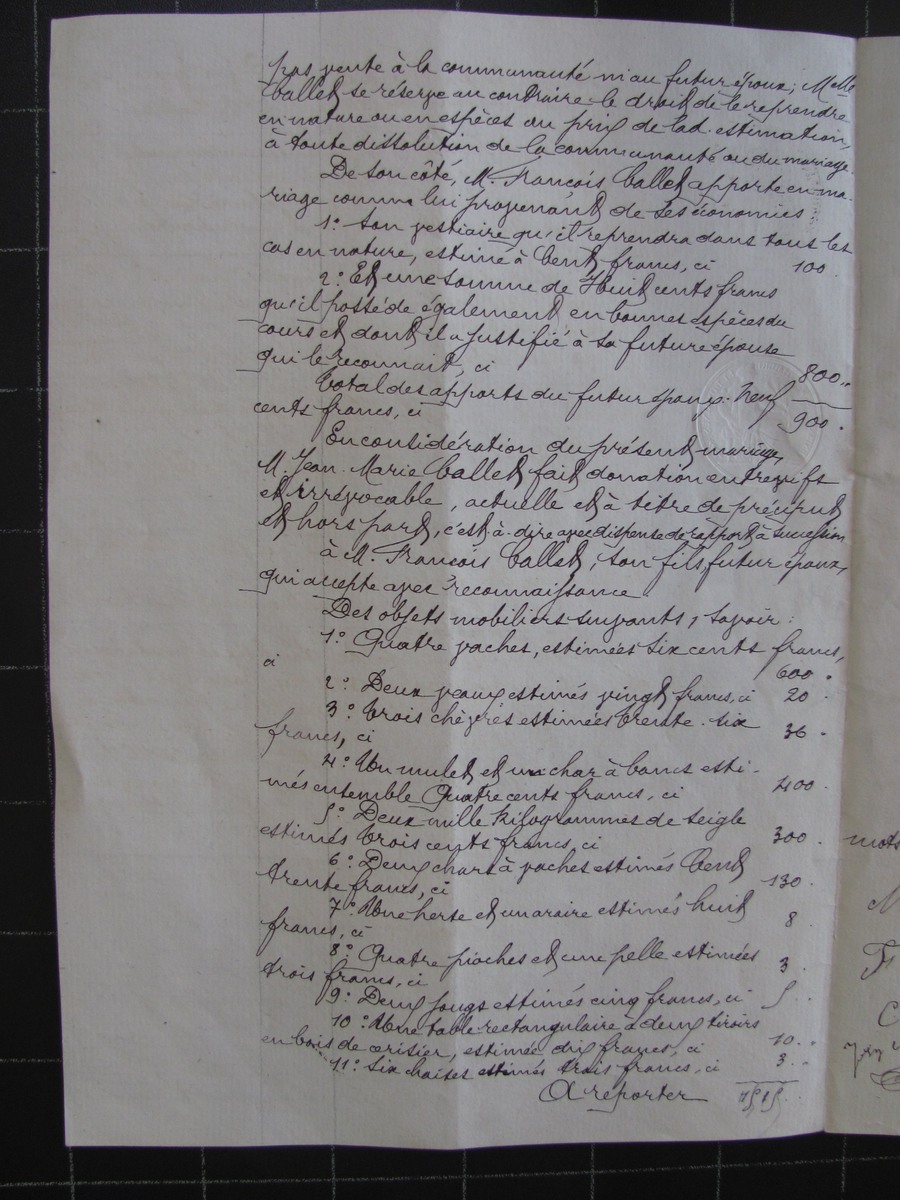 pas vente à la communauté ni au futur époux; Melle
Callet se réserve au contraire le droit de le reprendre
en nature ou en espèces au prix de lad. estimation,
à toute dissolution de la communauté ou du mariage.
De son côté, M. François Callet apporte en ma-
riage comme lui provenant de ses économies :
1° Son vestiaire qu'il reprendra dans tous les
cas en nature, estimé à Cent francs, ci 100
2° Et une somme de Huit cents francs
qu'il possède également en bonnes espèces du
cours et dont il a justifié à sa future épouse
qui le reconnait, ci 800..
Total des apports du futur époux. Neuf
cents francs, ci 900.
En considération du présent mariage,
M. Jean-Marie Callet fait donation entre vifs
et irrévocable, actuelle et à titre de préciput
et hors part, c'est-à-dire avec dispense de rapport à succession
à M. François Callet, son fils, futur époux,
qui accepte avec reconnaissance
Des objets mobiliers suivants, savoir :
1° Quatre vaches, estimées six cents francs,
ci 600.
2° Deux veaux estimés vingt francs, ci 20.
3° Trois chèvres estimées trente-six
francs, ci 36.
4° Un mulet et un char à bancs esti-
més ensemble Quatre cents francs, ci 400
5° Deux mille kilogrammes de seigle
estimés trois cents francs, ci 300.
6° Deux chars à vaches estimés Cent
trente francs, ci 130.
7° Une herse et un araire estimés huit
francs, ci 8
8° Quatre pioches et une pelle estimées
trois francs, ci 3.
9° Deux jougs estimés cinq francs, ci 5..
10° Une table rectangulaire à deux tiroirs
en bois de cerisier, estimée dix francs, ci 10..
11° Six chaises estimés trois francs, ci 3..
A reporter 1515
mots